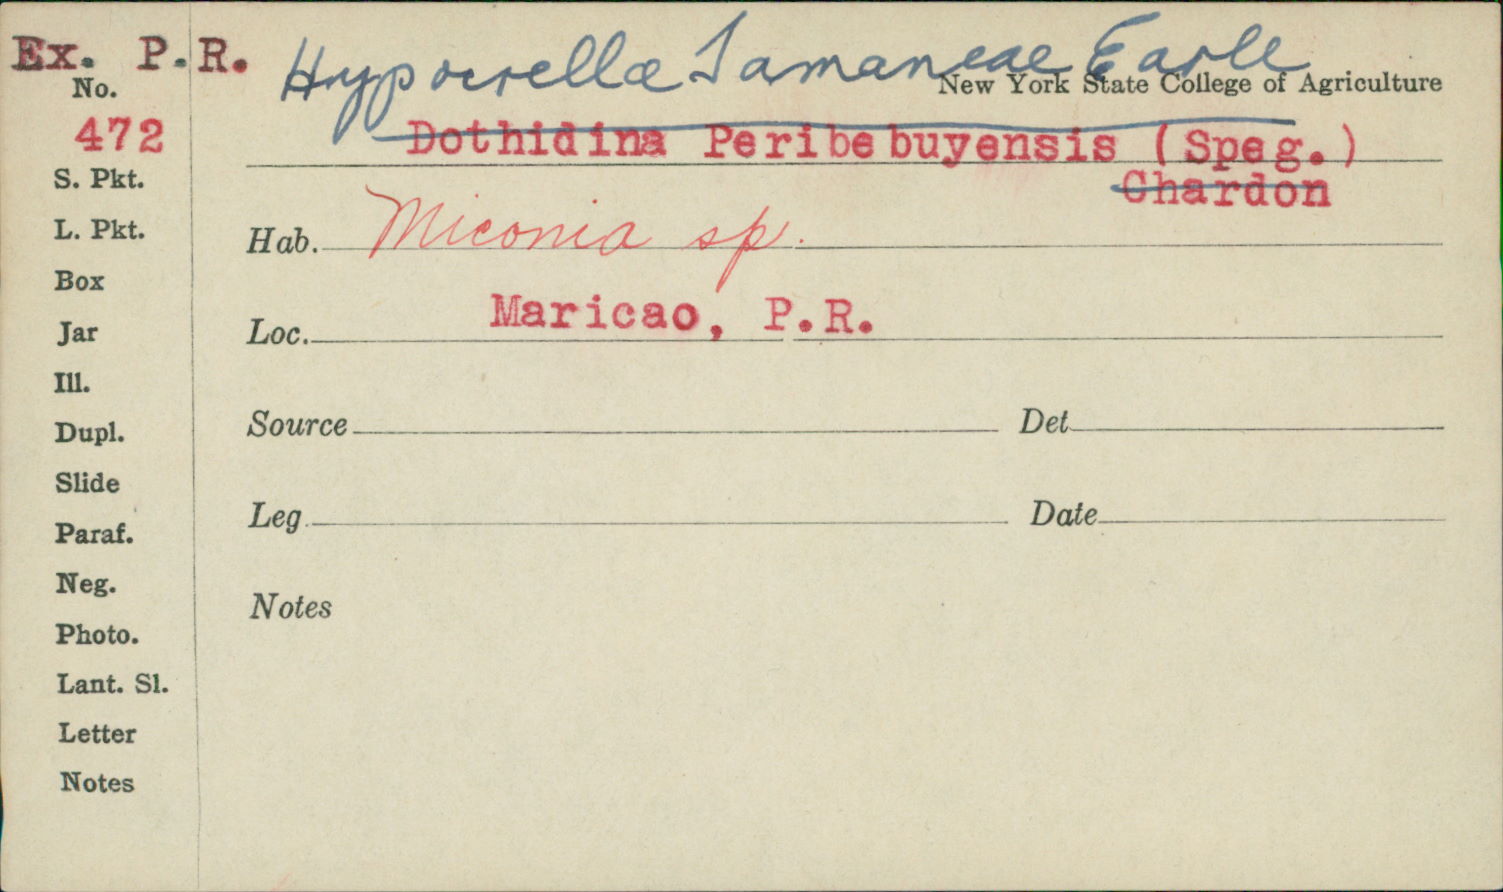 Ex. P.R.
Hypocrella Tamaneae Earle
No.
New York State College of Agriculture
472
Dothidina Peribebuyensis (Speg.)
Chardon
S. Pkt.
L. Pkt.
Hab. Miconia sp.
Box
Jar
Loc. Maricao, P.R.
Ill.
Dupl.
Source Det
Slide
Paraf.
Leg Date
Neg.
Notes
Photo.
Lant. Sl.
Letter
Notes